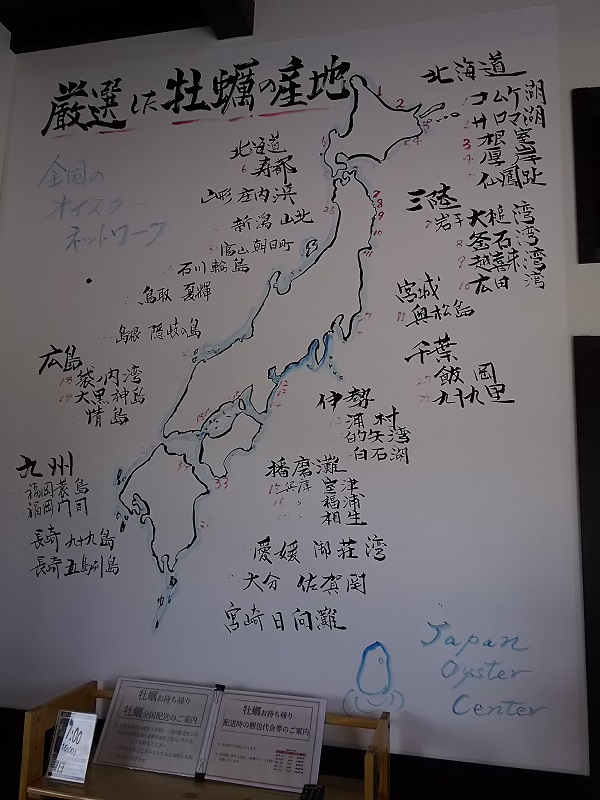 厳選した牡蠣の産地
全国の
オイスター
ネットワーク
北海道
コムケ湖
サロマ湖
3 根室
4 厚岸
仙鳳趾
北海道
6 寿都
山形 庄内浜
新潟 山北
富山 朝日町
石川 輪島
鳥取 夏輝
島根 隠岐の島
三陸
7 岩手 大槌湾
8 釜石湾
9 越喜来湾
10 広田湾
宮城
11 奥松島
千葉
飯岡
九十九里
伊勢
12 浦村
的矢湾
白石湖
広島
18 袋ノ内湾
大黒神島
情島
播磨灘
15 兵庫 室津
〃 福浦
相生
九州
福岡 蓑島
福岡 門司
長崎 九十九島
長崎 五島列島
愛媛 御荘湾
大分 佐賀関
宮崎 日向灘
Japan
Oyster
Center
牡蠣お持ち帰り
牡蠣全国配送のご案内
牡蠣お持ち帰り
配送時の梱包代金等のご案内